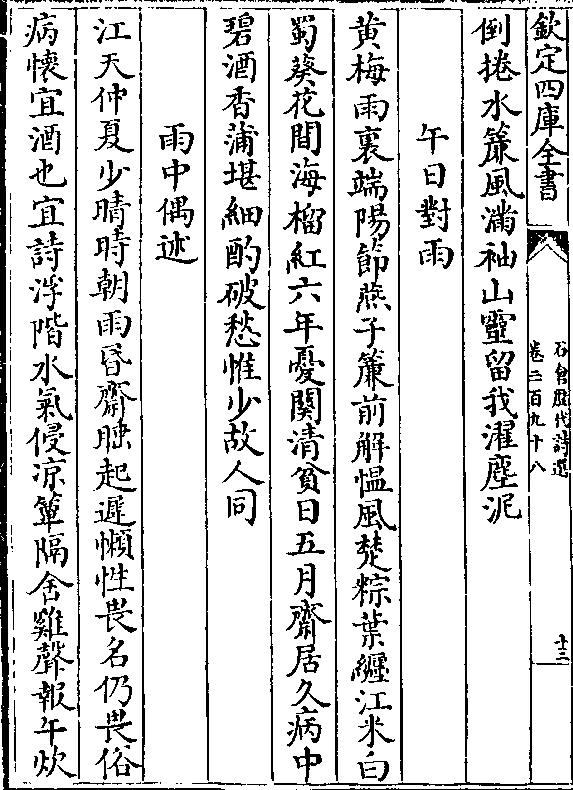 欽定四庫全書
石倉歷代詩選
卷三百九十八
十三
倒捲水簾風滿袖山靈留我濯塵泥
午日對雨
黃梅雨裏端陽節燕子簾前解愠風楚粽葉纒江米白
蜀葵花間海榴紅六年憂闗清貧日五月齋居久病中
碧酒香蒲堪細酌破愁惟少故人同
雨中偶述
江天仲夏少晴時朝雨昏齋眂起遲懶性畏名仍畏俗
病懷宜酒也宜詩浮階水氣侵凉簟隔舍雞聲報午炊